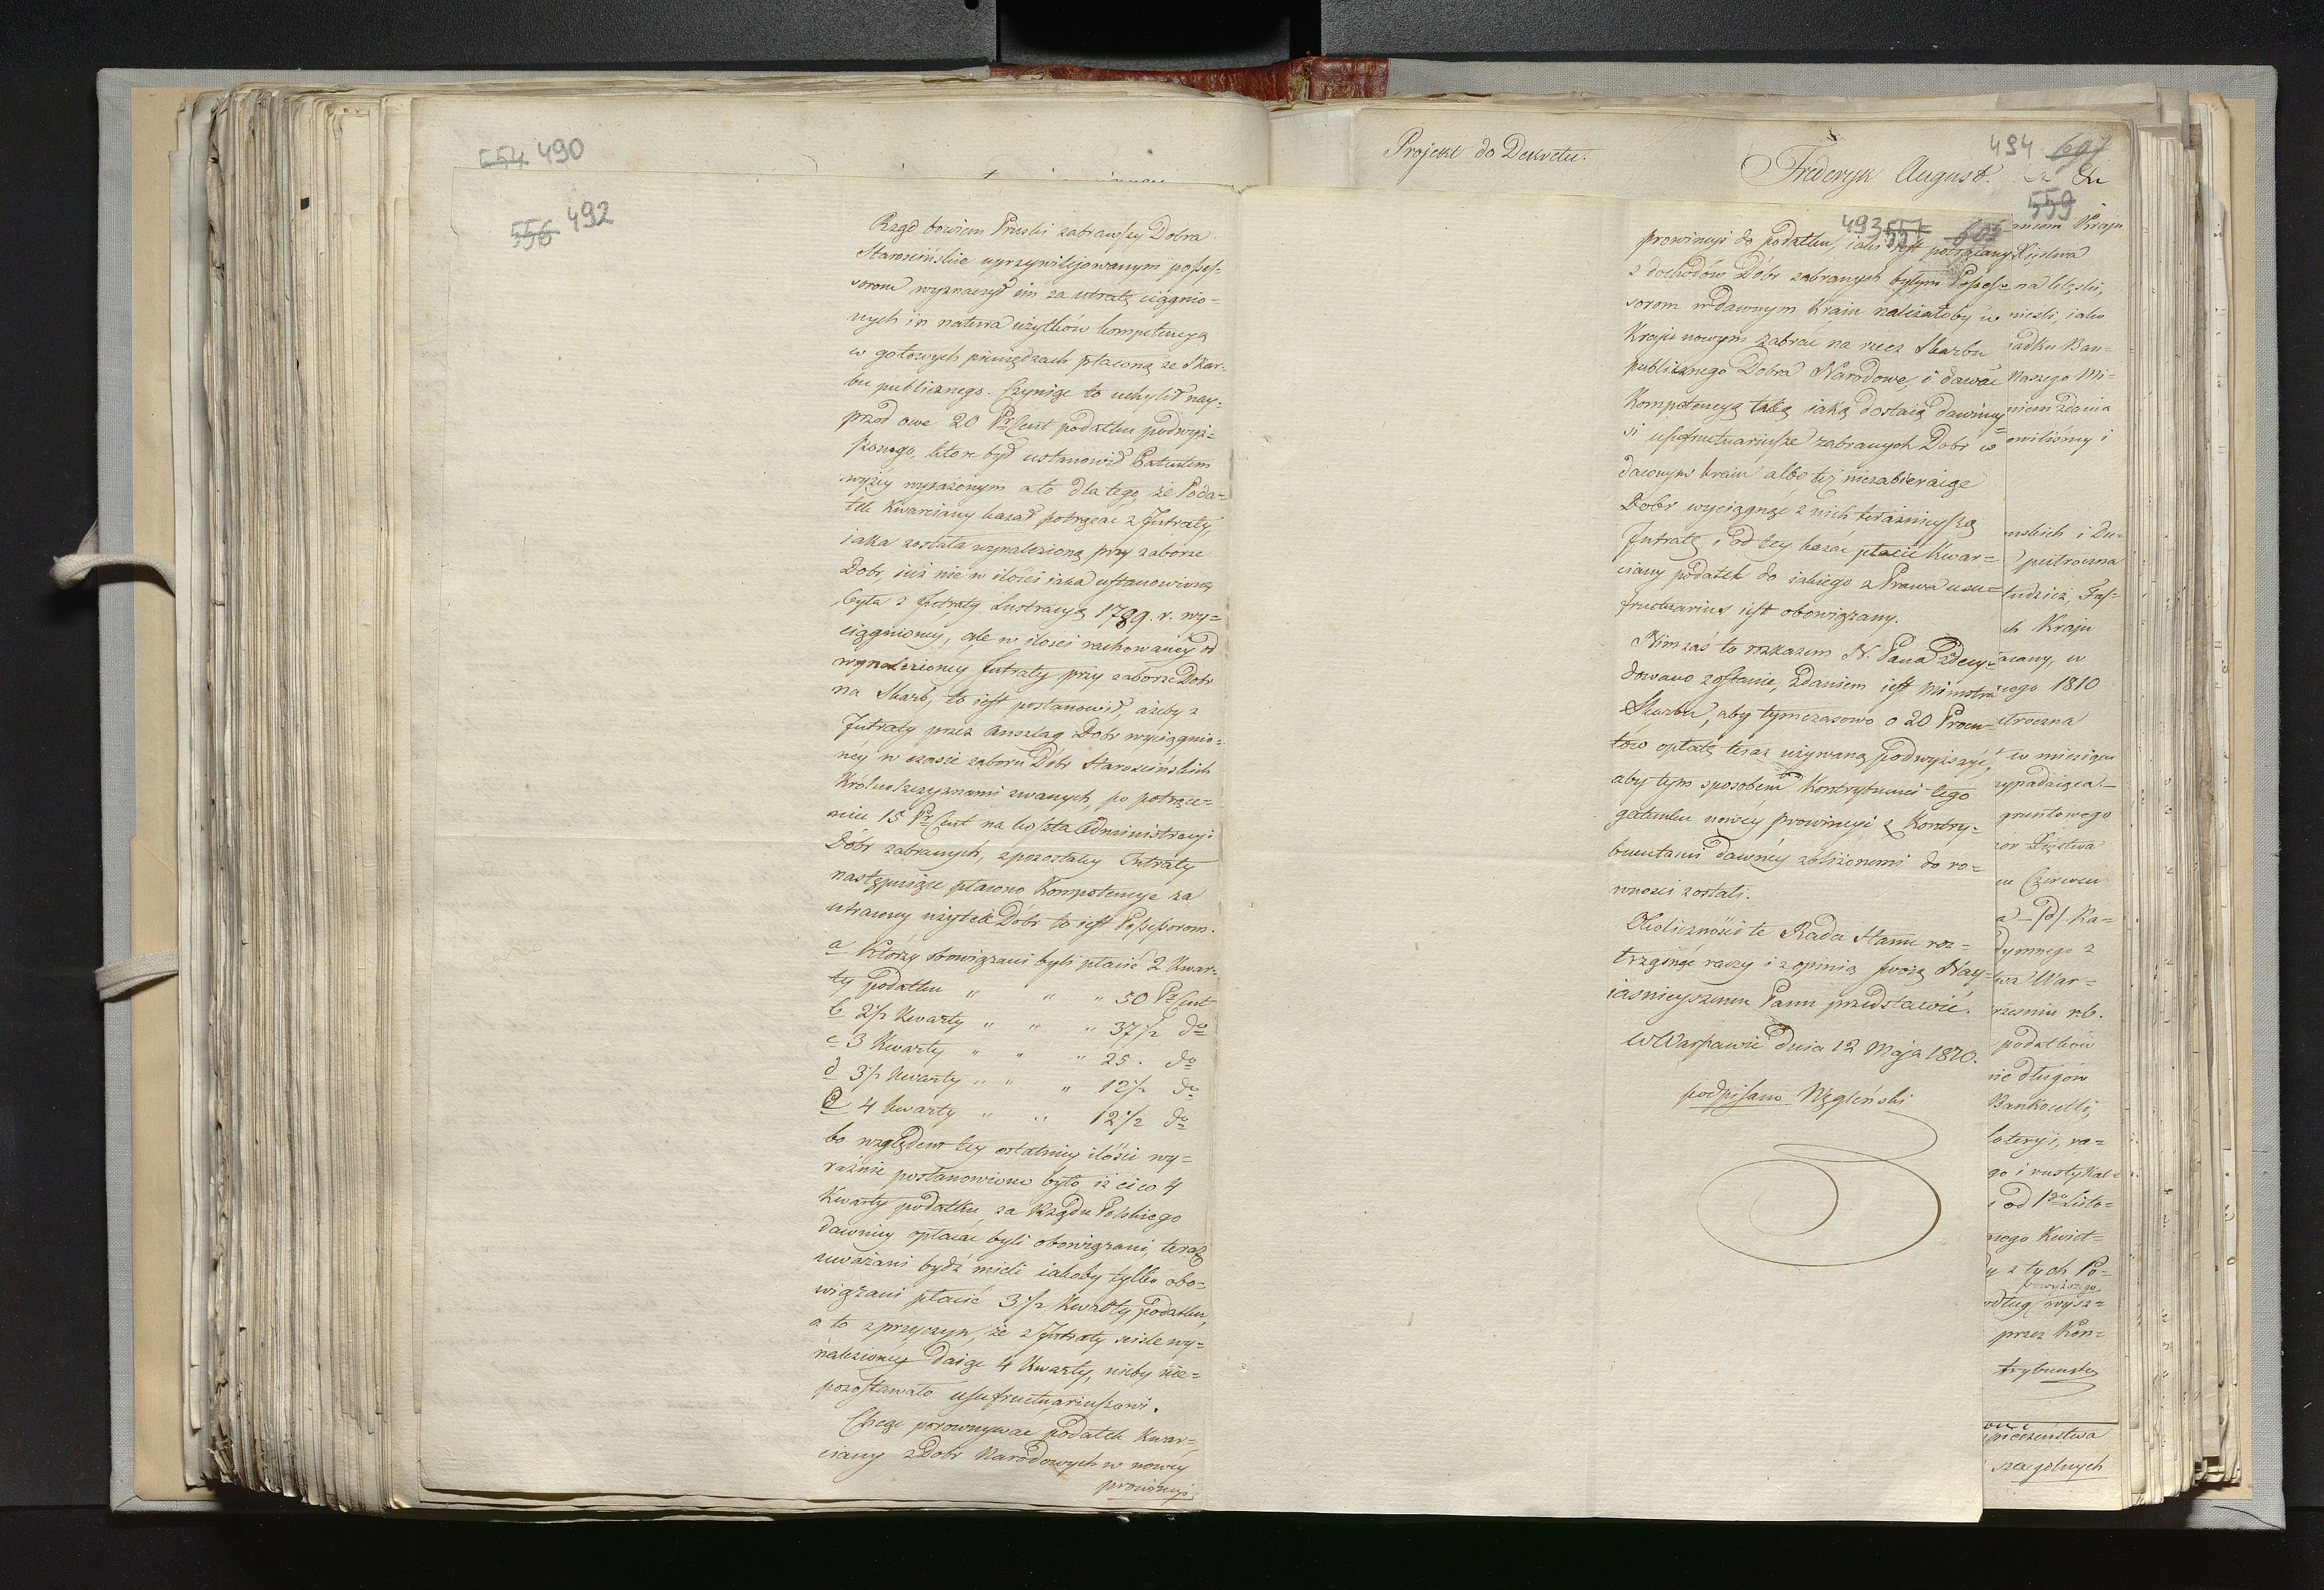 554 490
556 492
Rząd bowiem Pruski zabrawszy Dobra
Starościńskie uprzywilejowanym posses-
sorom wyznaczył im za utratę ciągnio-
nych in natura użytków kompetencyą
w gotowych pieniędzach płaconą ze Skar-
bu publicznego. Czyniąc to uchylił nay-
przod owe 20 Pr Cent podatku podwyż-
szonego, które był ustanowił Patentem
wyżey wyrażonym a to dla tego, że Poda-
tek Kwarciany kazał potrącać z Intraty,
iaka została wynalezioną przy zaborze
Dobr, już nie w ilości iaka ustanowioną
była z Intraty Lustracyą 1789. r. wy-
ciągnioney, ale w ilości rachowaney od
wynalezioney Intraty przy zaborze Dobr
na Skarb, to iest postanowił, ażeby z
Intraty przez Anszlag Dobr wyciągnio-
ney w czasie zaboru Dóbr Starościńskich
Królewszczyznami zwanych, po potrące-
niu 15 Pr Cent na koszta Administracyi
Dóbr zabranych, z pozostałey Intraty
następuiące płacono Kompetencye za
utracony użytek Dóbr to iest Possessorom.
a Którzy obowiązani byli płacić 2 Kwar-
ty podatku " " " 50 Pr Cent
b 2 1/2 Kwarty " " " 37 1/2 do
c 3 Kwarty " " " 25. do
d 3 1/2 Kwarty " " " 12 1/2 do
e 4 Kwarty " " 12 1/2 do
bo względem tey ostatniey ilości wy-
raźnie postanowiono było, iż ci co 4
Kwarty podatku za Rządu Polskiego
dawniey opłacać byli obowiązani, teraz
uważani bydź mieli iakoby tylko obo-
wiązani płacić 3 1/2 Kwarty podatku,
a to z przyczyn, że z Intraty ściśle wy-
nalezioney daiąc 4 Kwarty, nicby nie-
pozostawało usufructuariuszowi.
Chcąc porownywać podatek Kwar-
ciany z Dobr Narodowych w nowey
prowincyi
Projekt do Dekretu.
494 607
Fryderyk August. &c &c
559
493 557 605
prowincyi do podatku, iaki iest potrącany
z dochodów Dóbr zabranych byłym Posses-
sorom w dawnym kraju należałoby w
Kraju nowym zabrać na rzecz Skarbu
publicznego Dobra Narodowe, i dawać
Kompetencyą taką iaką dostaią dawniey-
si usufructuariusze zabranych Dobr w
dawnym kraiu albo też niezabieraiąc
Dobr wyciągnąć z nich teraźnieyszą
Intratę i od tey kazać płacić Kwar-
ciany podatek do iakiego z Prawa usu-
fructuarius iest obowiązany.
Nim zaś to rozkazem N. Pana zdecy-
dowano zostanie, zdaniem iest Ministra
Skarbu, aby tymczasowo o 20 Procen-
tow opłatę teraz używaną podwyższyć,
aby tym sposobem Kontrybuenci tego
gatunku nowey prowincyi z Kontry-
buentami dawney zbliżonemi do ro-
wności zostali.
Okoliczności te Rada Stanu roz-
trząsnąć raczy i z opinią swoią Nay-
iaśnieyszemu Panu przedstawić.
w Warszawie dnia 12 Maja 1810.
podpisano Węgleński
Kraju
Xięstwa
na liczki,
nieśli, iako
adku Ban-
Naszego Mi-
niem Zdania
owiliśmy i
mskich i Du-
putroczna
tudzież, Fas-
ch Kraju
acany, w
cego 1810
troczna
w miesiącu
zypadaiąca
gruntowego
Xięstwa
Czerwcu
dymnego z
twa War-
rześniu r.b.
podatków
nie długów
Bankoutli,
loteryi, ra-
go i rustykal-
i od 1go Listo-
nego Kwiet-
y z tych Po-
odług wysz-
przez Kon-
trybuenta
pieczeństwa
szczegolnych